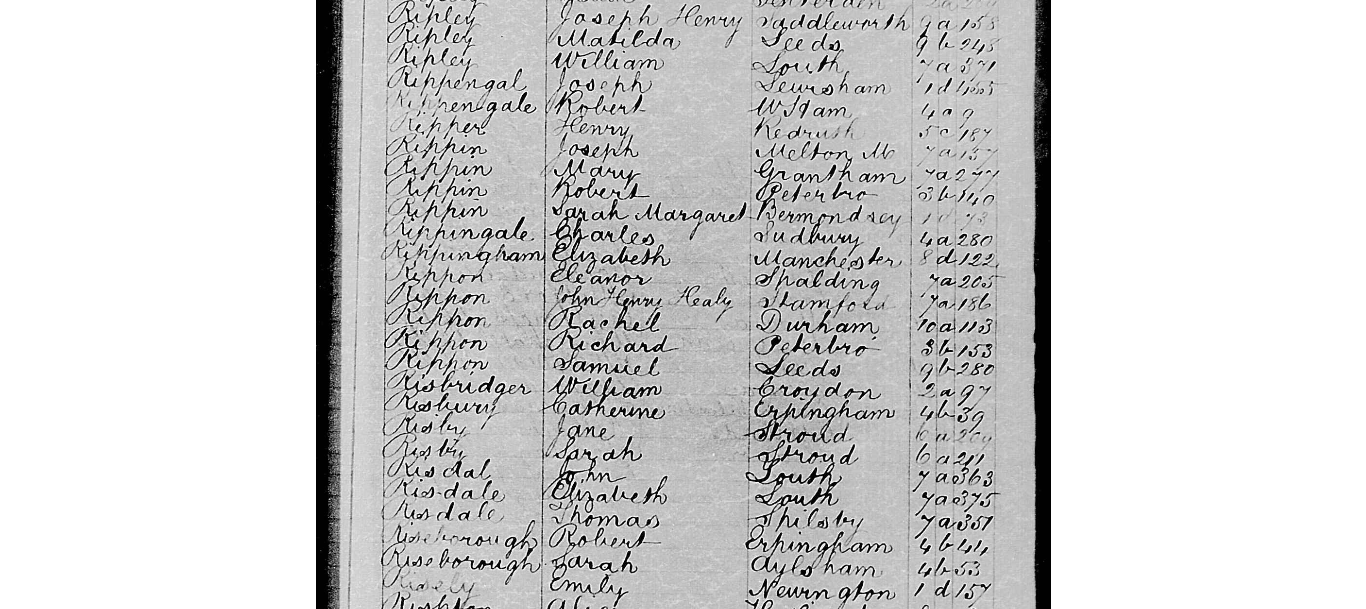 Ripley Joseph Henry Saddleworth 9a 158
Ripley Matilda Leeds 9b 248
Ripley William Louth 7a 371
Rippengal Joseph Lewisham 1d
Rippengale Robert Witham 4a 9
Ripper Henry Redruth 5c 187
Rippin Joseph Melton M 7a 157
Rippin Mary Grantham 7a 277
Rippin Robert Peterbro 3b 140
Rippin Sarah Margaret Bermondsey 1d 73
Rippingale Charles Sudbury 4a 280
Rippingham Elizabeth Manchester 8d 122
Rippon Eleanor Spalding 7a 205
Rippon John Henry Healy Stamford 7a 186
Rippon Rachel Durham 10a 113
Rippon Richard Peterbro 3b 153
Rippon Samuel Leeds 9b 280
Risbridger William Croydon 2a 97
Risbury Catherine Erpingham 4b 39
Risby Jane Stroud 6a
Risby Sarah Stroud 6a 211
Risdal John Louth 7a 363
Risdale Elizabeth Louth 7a 375
Risdale Thomas Spilsby 7a 351
Riseborough Robert Erpingham 4b 44
Riseborough Sarah Aylsham 4b 53
Risely Emily Newington 1d 157